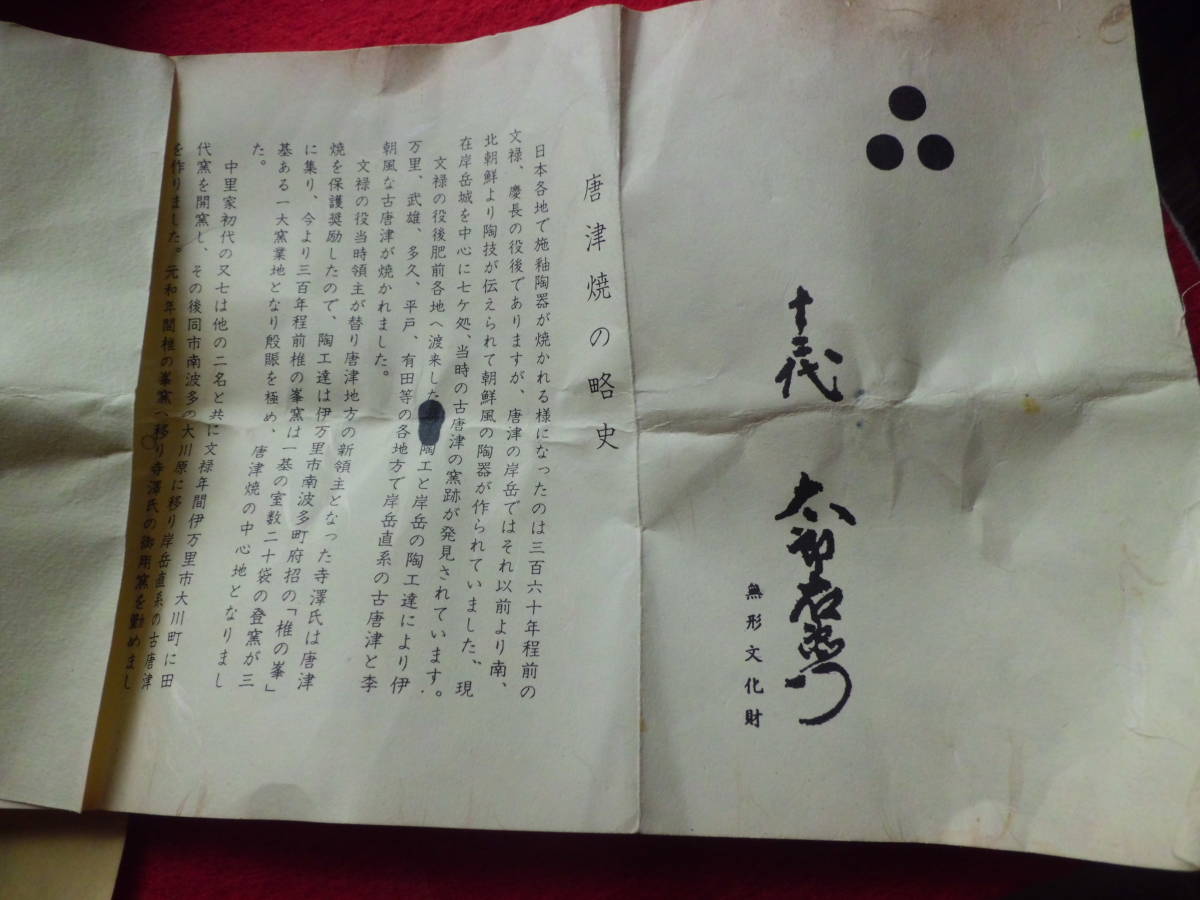 十二代
太郎右衛門
無形文化財
唐津焼の略史
日本各地で施釉陶器が焼かれる様になったのは三百六十年程前の
文禄、慶長の役後でありますが、唐津の岸岳ではそれ以前より南、
北朝鮮より陶技が伝えられて朝鮮風の陶器が作られていました、現
在岸岳城を中心に七ケ処、当時の古唐津の窯跡が発見されています。
文禄の役後肥前各地へ渡来した陶工と岸岳の陶工達により伊
万里、武雄、多久、平戸、有田等の各地方で岸岳直系の古唐津と李
朝風な古唐津が焼かれました。
文禄の役当時領主が替り唐津地方の新領主となった寺澤氏は唐津
焼を保護奨励したので、陶工達は伊万里市南波多町府招の「椎の峯」
に集り、今より三百年程前椎の峯窯は一基の室数二十袋の登窯が三
基ある一大窯業地となり殷賑を極め、唐津焼の中心地となりまし
た。
中里家初代の又七は他の二名と共に文禄年間伊万里市大川町に田
代窯を開窯し、その後同市南波多の大川原に移り岸岳直系の古唐津
を作りました。元和年間椎の峯窯へ移り寺澤氏の御用窯を勤めまし